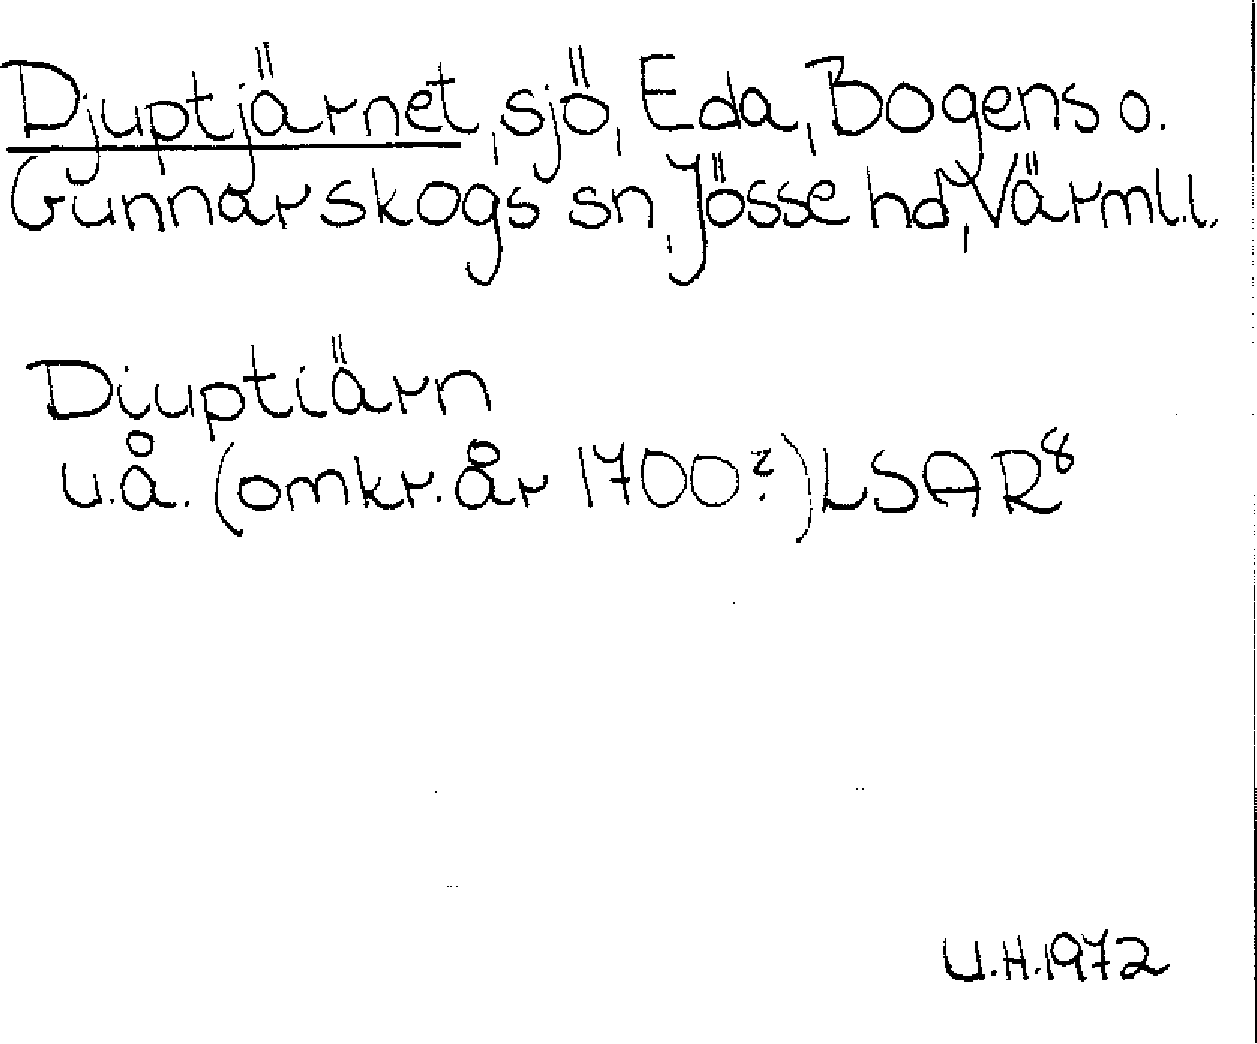 Djuptjärnet, sjö, Eda, Bogens o.
Gunnarskogs sn, Jösse hd, Värml.l.
Diuptiärn
u.å. (omkr. år 1700?) LSAR⁸
U.H. 1972